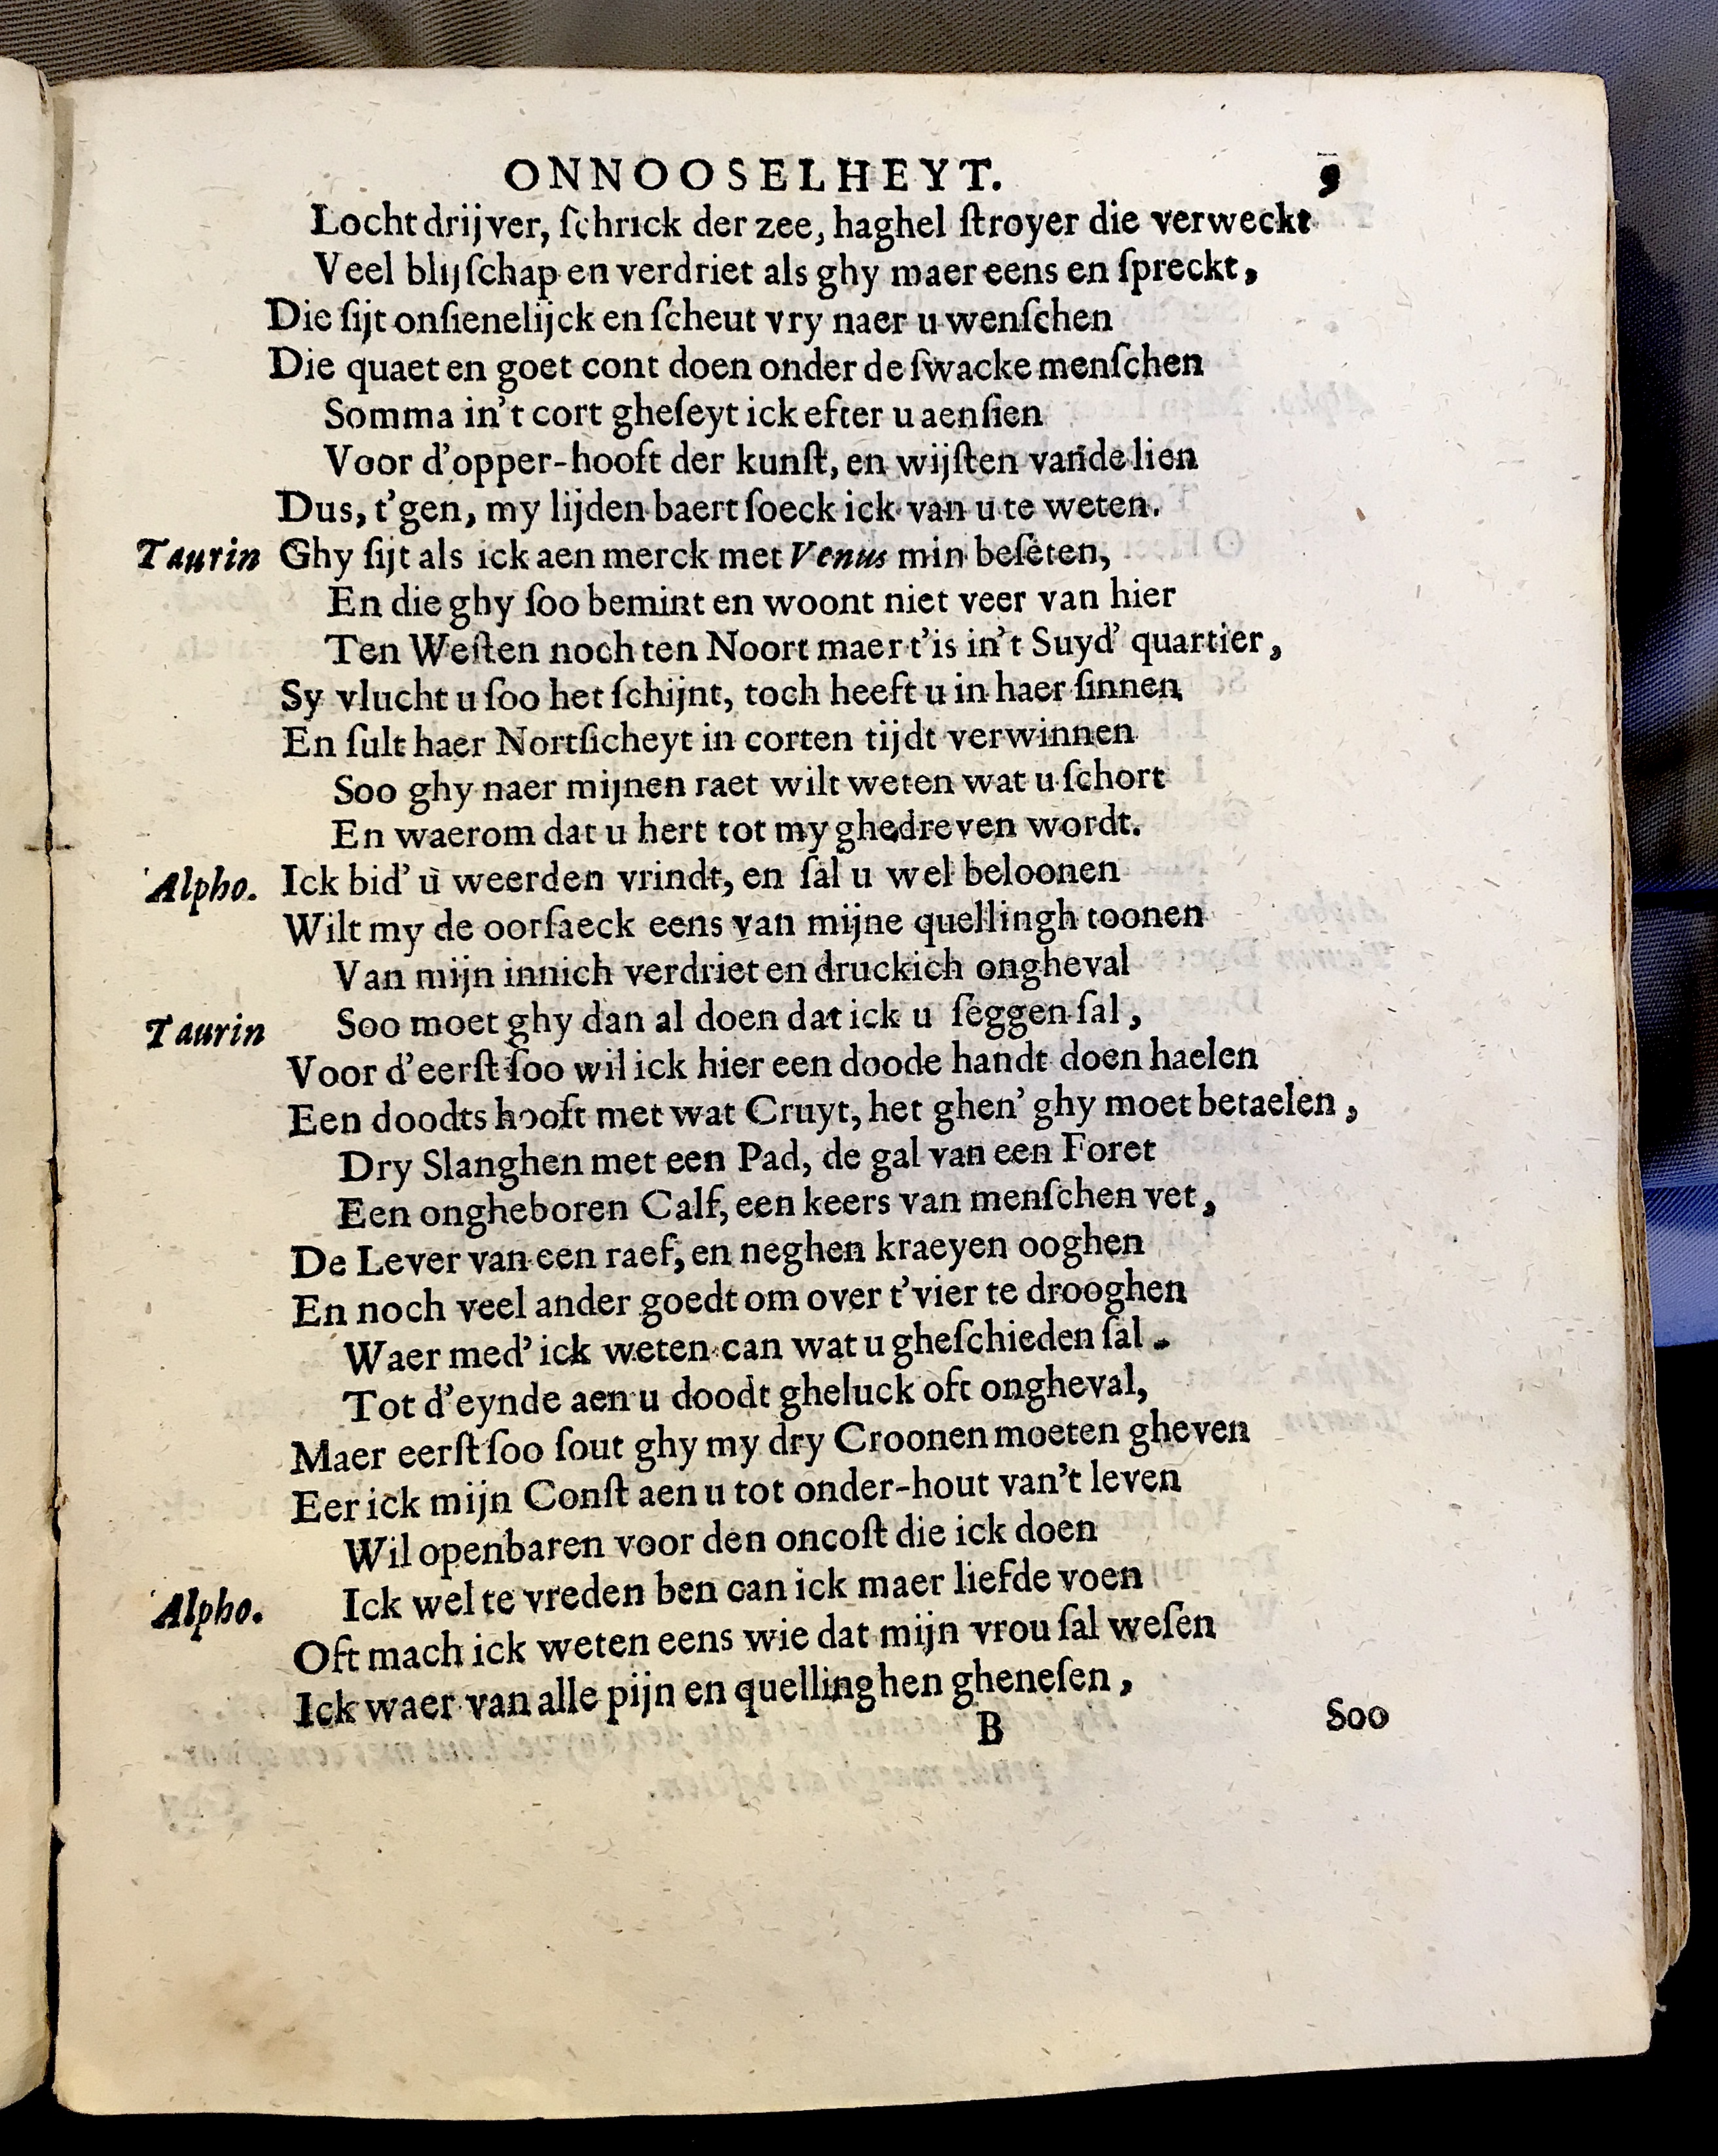 ONNOOSELHEYT. 9
Locht drijver, ſchrick der zee, haghel ſtroyer die verweckt
Veel blijſchap en verdriet als ghy maer eens en ſpreckt,
Die ſijt onſienelijck en ſcheut vry naer u wenſchen
Die quaet en goet cont doen onder de ſwacke menſchen
Somma in't cort gheſeyt ick efter u aenſien
Voor d'opper-hooft der kunſt, en wijſten vande lien
Dus, t'gen, my lijden baert ſoeck ick van u te weten.
Taurin Ghy ſijt als ick aen merck met Venus min beſeten,
En die ghy ſoo bemint en woont niet veer van hier
Ten Weſten noch ten Noort maer t'is in't Suyd' quartier,
Sy vlucht u ſoo het ſchijnt, toch heeft u in haer ſinnen
En ſult haer Nortſicheyt in corten tijdt verwinnen
Soo ghy naer mijnen raet wilt weten wat u ſchort
En waerom dat u hert tot my ghedreven wordt.
Alpho. Ick bid' u weerden vrindt, en ſal u wel beloonen
Wilt my de oorſaeck eens van mijne quellingh toonen
Van mijn innich verdriet en druckich ongheval
Taurin Soo moet ghy dan al doen dat ick u ſeggen ſal,
Voor d'eerſt ſoo wil ick hier een doode handt doen haelen
Een doodts hooft met wat Cruyt, het ghen' ghy moet betaelen,
Dry Slanghen met een Pad, de gal van een Foret
Een ongheboren Calf, een keers van menſchen vet,
De Lever van een raef, en neghen kraeyen ooghen
En noch veel ander goedt om over t'vier te drooghen
Waer med' ick weten can wat u gheſchieden ſal.
Tot d'eynde aen u doodt gheluck oft ongheval,
Maer eerſt ſoo ſout ghy my dry Croonen moeten gheven
Eer ick mijn Conſt aen u tot onder-hout van't leven
Wil openbaren voor den oncoſt die ick doen
Alpho. Ick wel te vreden ben can ick maer liefde voen
Oft mach ick weten eens wie dat mijn vrou ſal weſen
Ick waer van alle pijn en quellinghen gheneſen,
B Soo